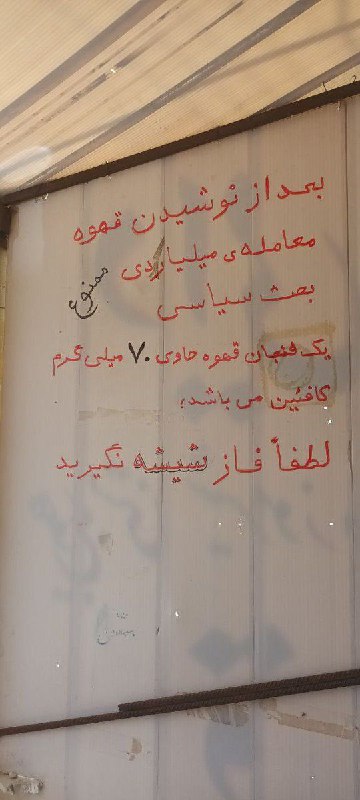 بعد از نوشیدن قهوه
معامله‌ی میلیاردی
بحث سیاسی
ممنوع
یک فنجان قهوه حاوی ۷۰ میلی گرم
کافئین می باشد؛
لطفاً فاز شیشه نگیرید